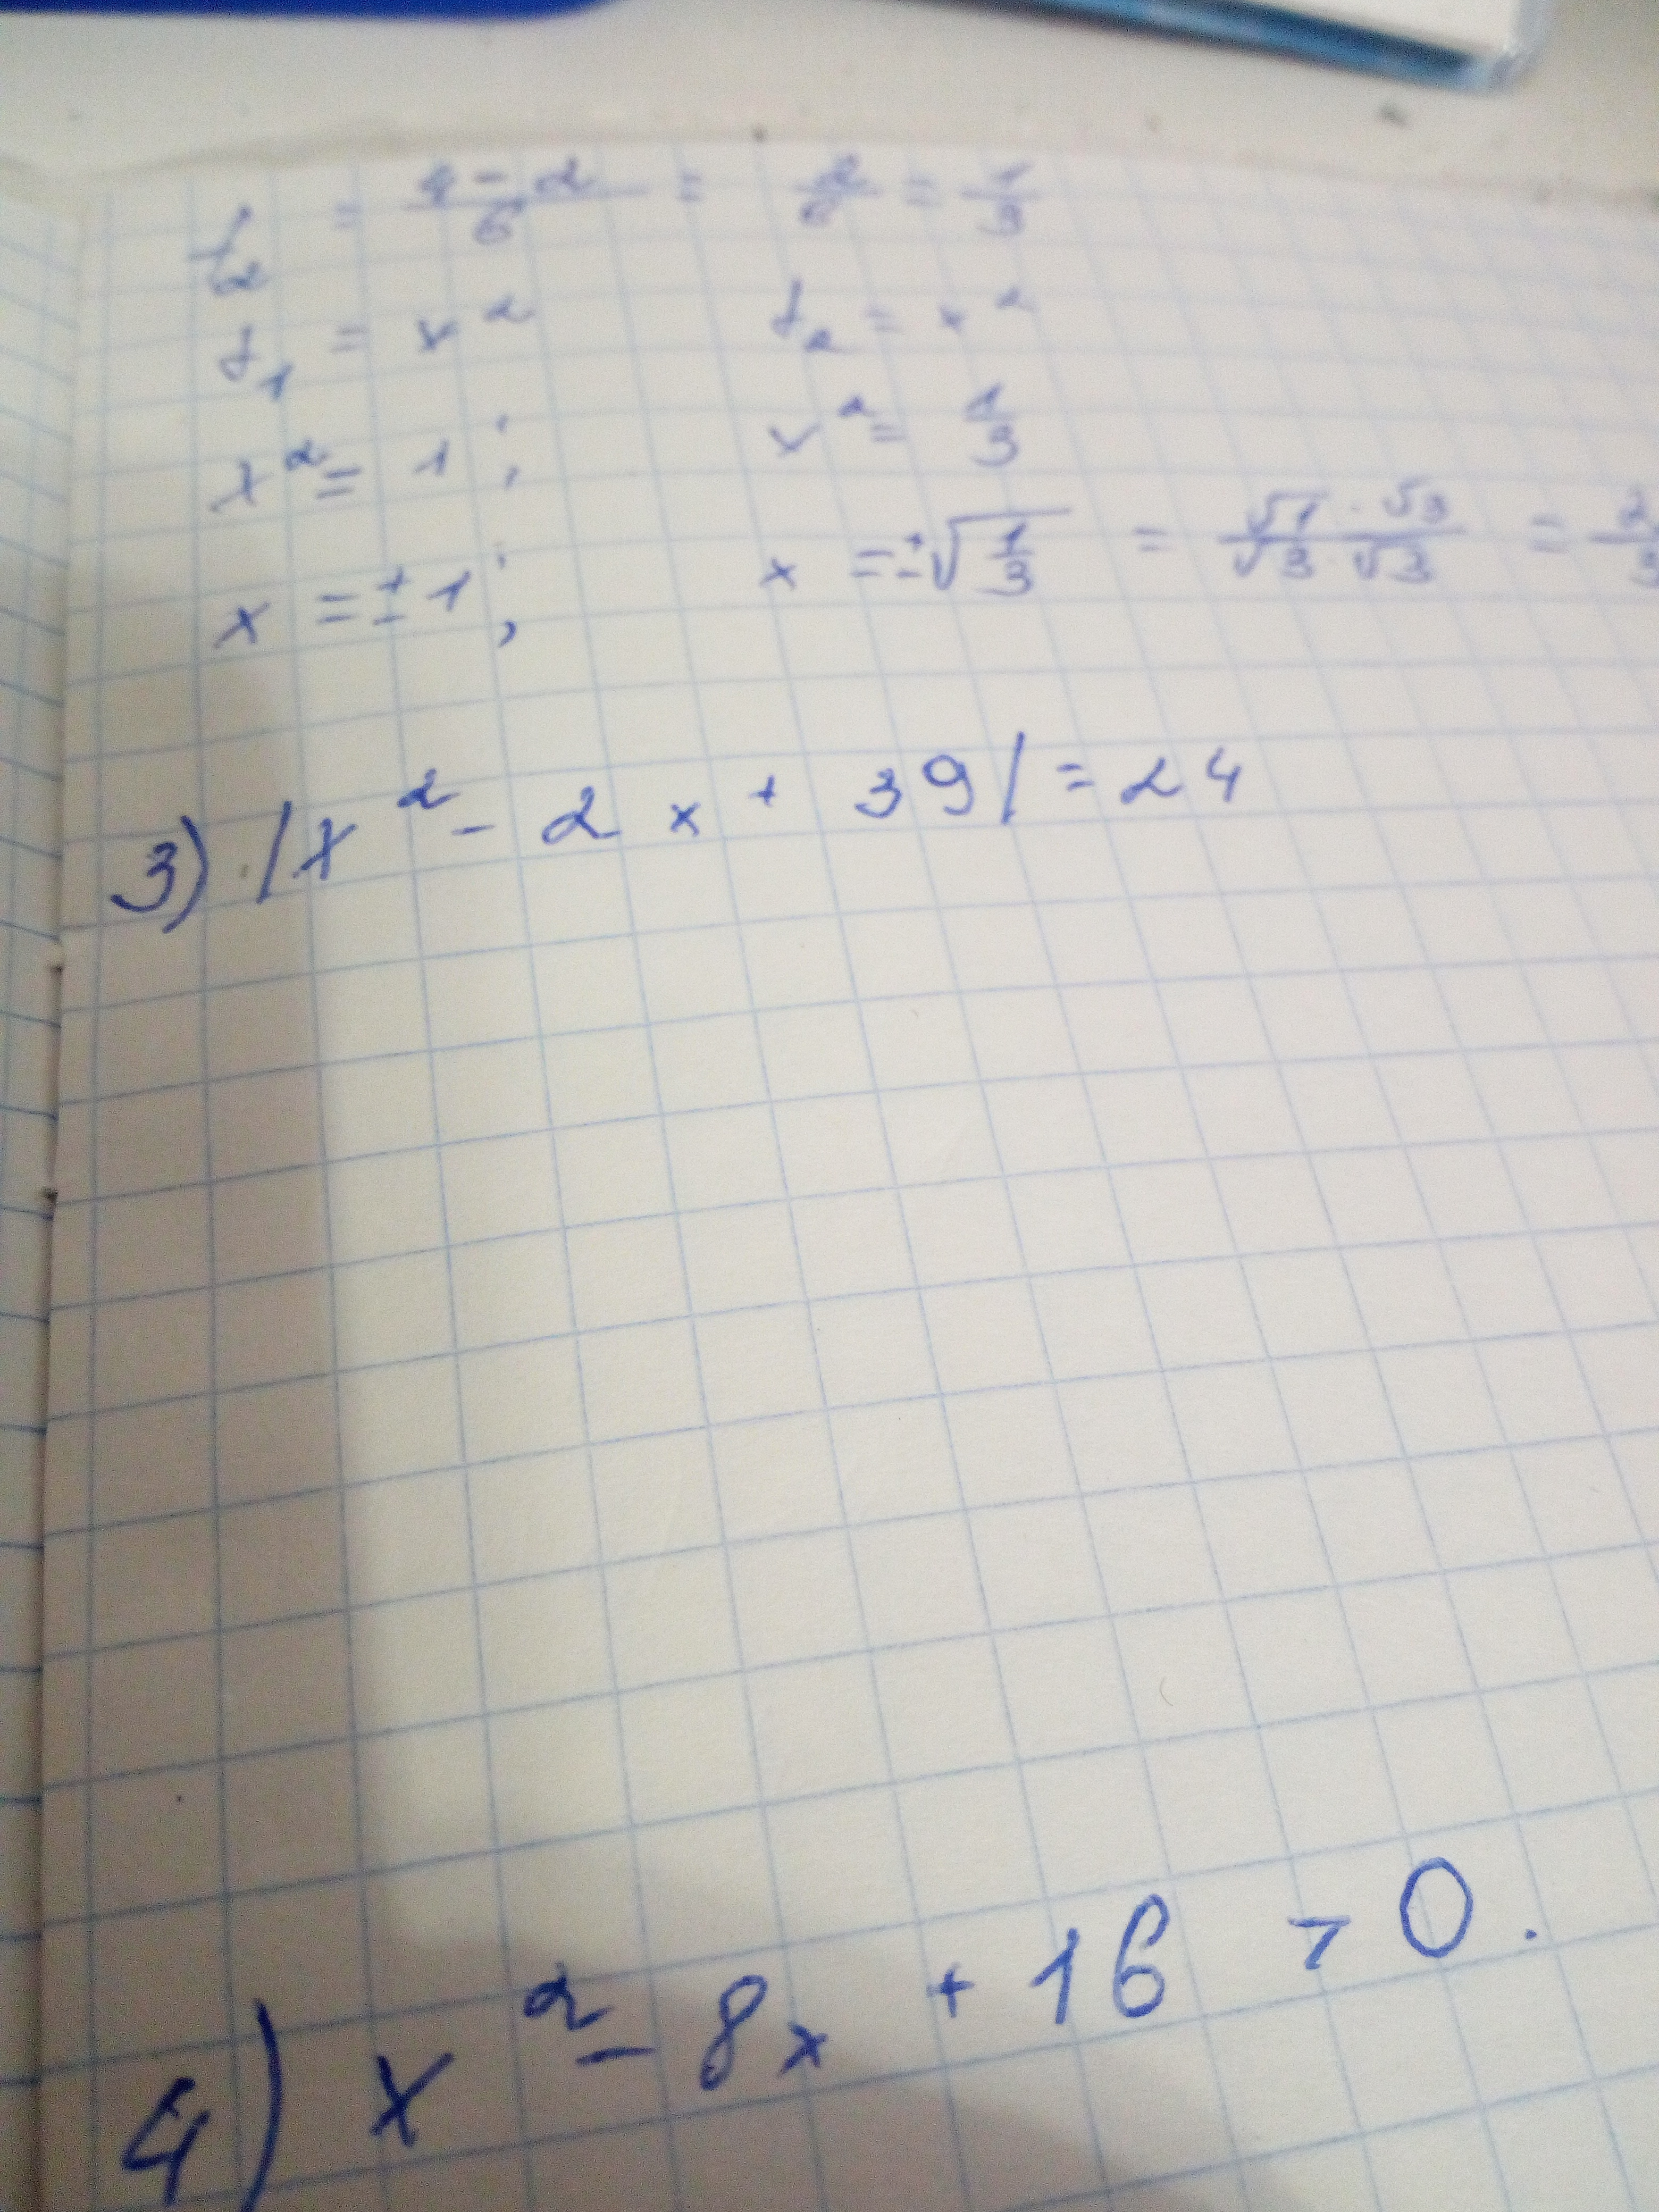 t₂ = (4 - 2)/6 = 2/6 = 1/3
t₁ = x² t₂ = x²
x² = 1 ; x² = 1/3
x = ± 1 ; x = ±√(1/3) = (√1 · √3)/(√3 · √3) =
3) |x² - 2x + 39| = 24
4) x² - 8x + 16 > 0.